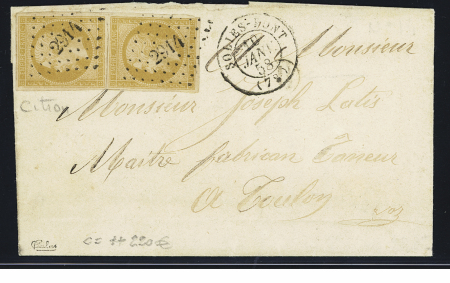 2914 2914
SOLLIES-PONT
16
JANV.
58
(78)
Monsieur
Citron
Monsieur Joseph Latis
Maitre fabrican Taneur
A Toulon
220€